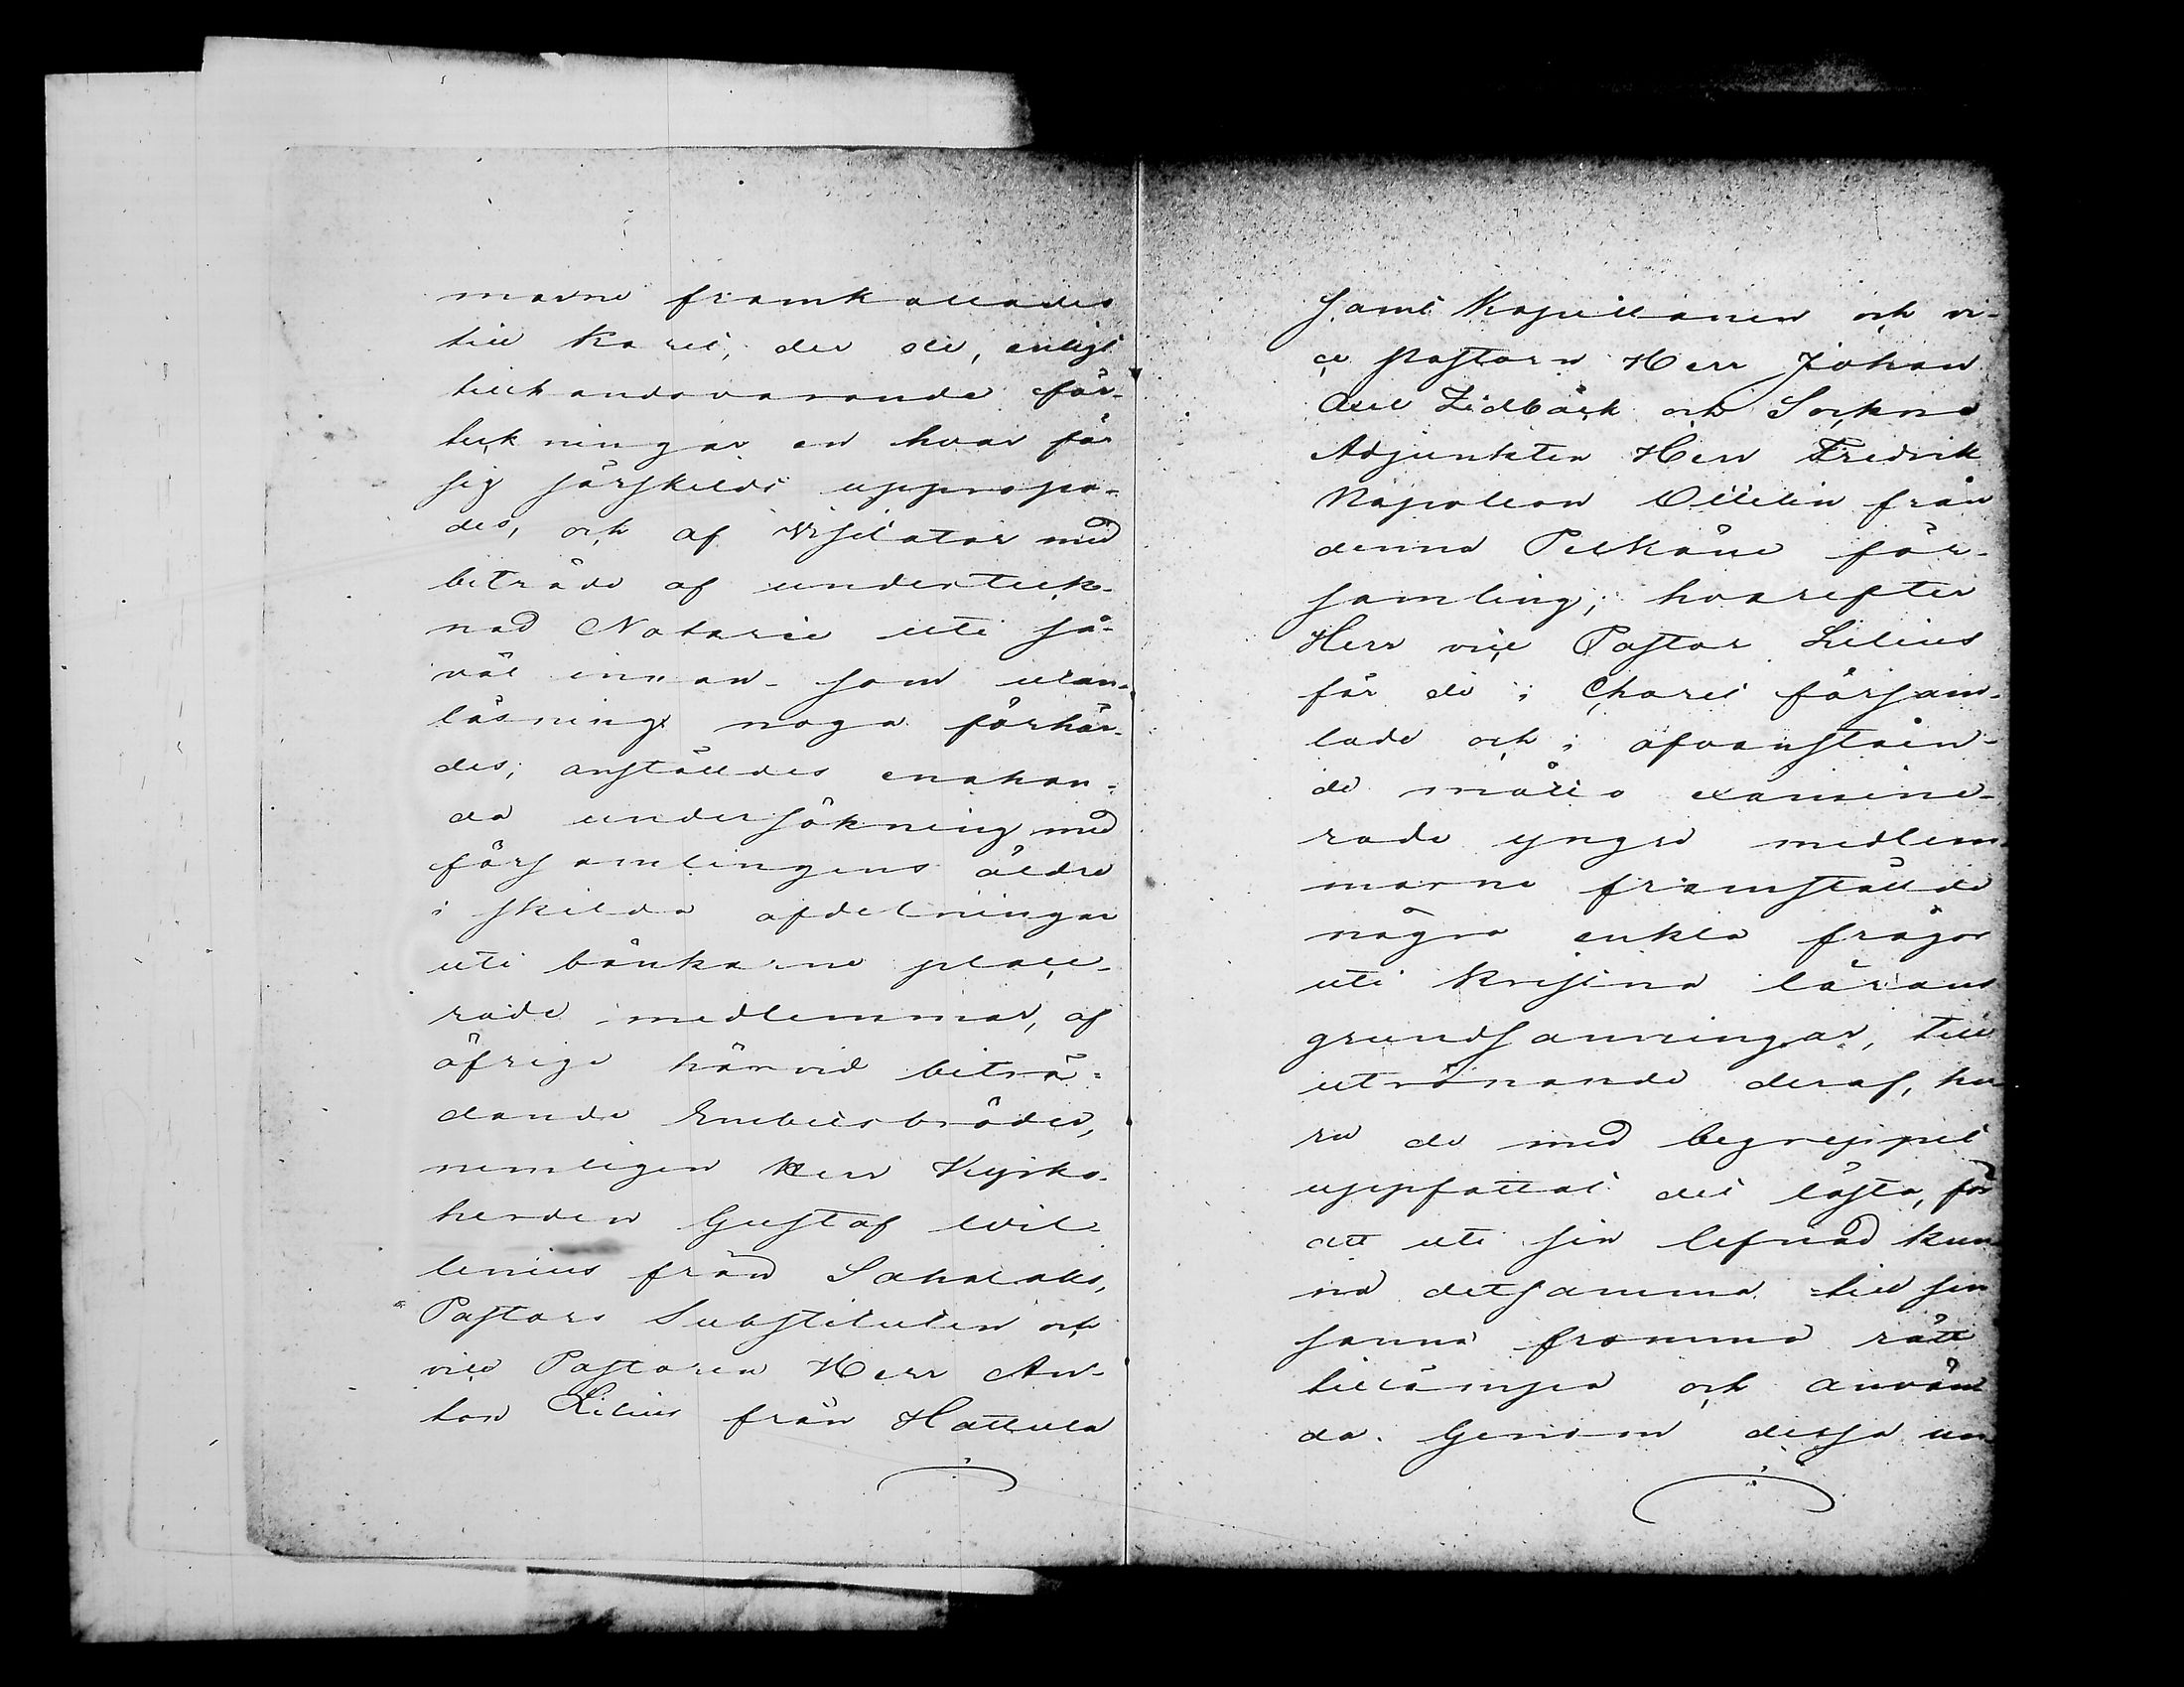 marne framkallades
till Koret, der de, enligt
tillhandavarande för-
teckningar en hvar för
sig särskildt uppropa-
des, och af Visitator med
biträde af underteck-
nad Notarie uti så-
väl innan- som utan-
läsning noga förhör-
des, anställdes enahan-
da undersökning med
församlingens äldre
i skilda afdelningar
uti bänkarne place-
rade medlemmar, af
öfrige härvid biträ-
dande Embetsbröder,
nemligen Herr Kyrko-
herden Gustaf Wil-
lenius från Sahalaks,
Pastors Substituten och
vice Pastoren Herr An-
ton Lilius från Hattula
samt Kapellanen och vi-
ce pastorn Herr Johan
Axel Zidbäck och Sockne
Adjunkten Herr Fredrik
Napoleon Ollelin från
denna Pelkäne för-
samling; hvarefter
Herr vice Pastor Lilius
för de i Choret försam-
lade och i ofvanståen-
de måtto examine-
rade yngre medlem-
marne framställde
några enkla frågor
uti kristna lärans
grundsanningar, till
utrönande deraf, hu-
ru de med begreppet
uppfattat det lästa, för
att uti sin lefnad kun-
na detsamma till sin
sanna fromma rätt
tillämpa och använ-
da. Genom dessa un-